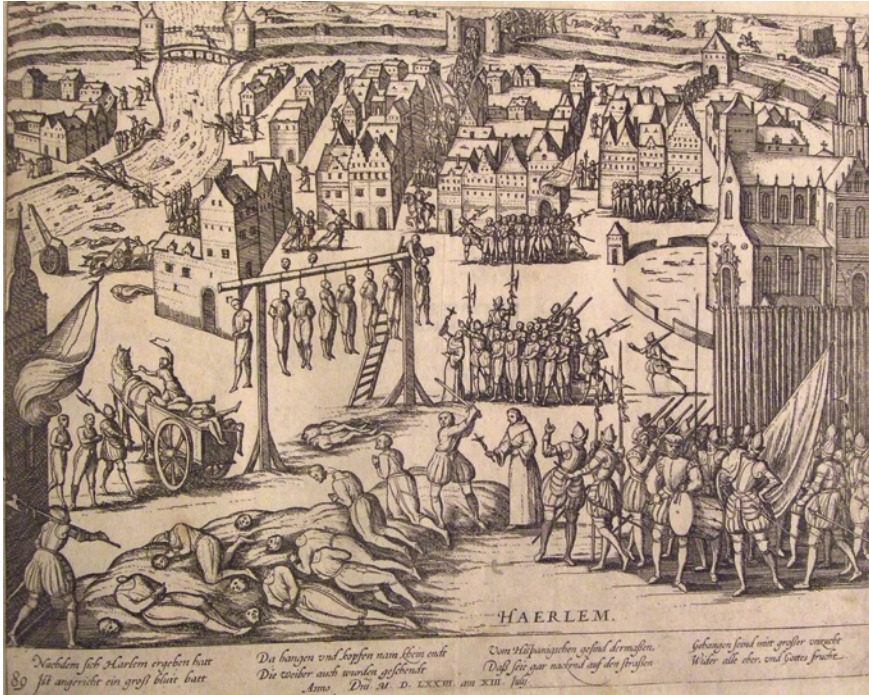 HAERLEM.
Nachdem sich Harlem ergeben hatt
Ist angericht ein groß bluit batt
Da hangen vnd kopfen nam khein endt
Die weiber auch wurden geschendt
Vom Hispanischen gesind dermaßen,
Daß seie gar nackend auf den straßen
Gehangen seind mitt großer vnzucht
Wider alle eher, vnd Gottes frucht.
Anno. Dni. M. D. LXXIII. am XIII. July.
89